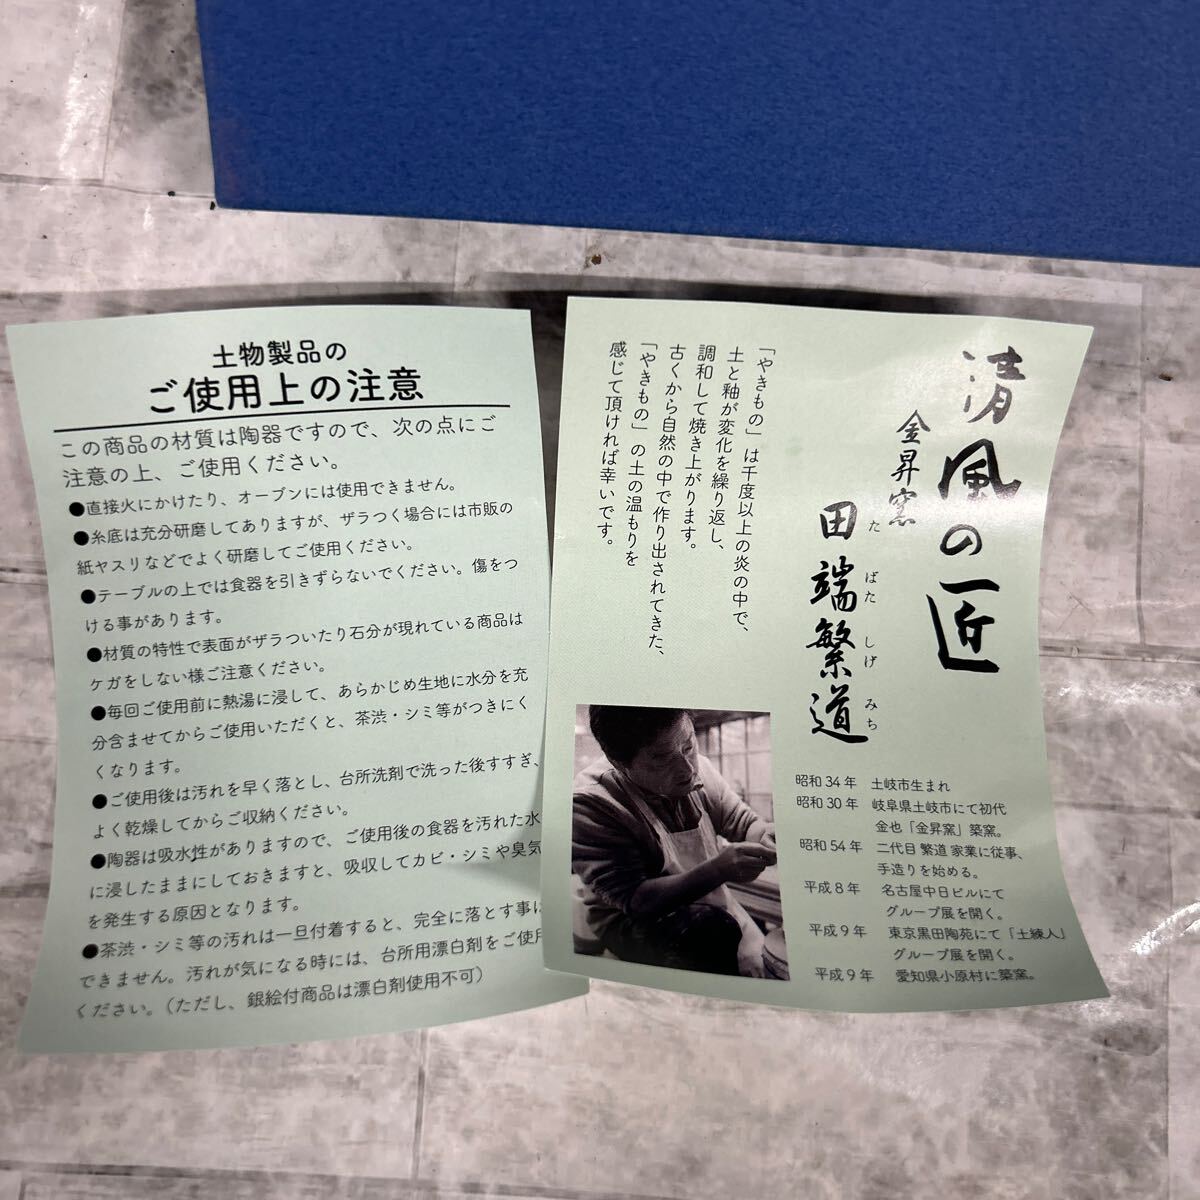 土物製品の
ご使用上の注意
この商品の材質は陶器ですので、次の点にご
注意の上、ご使用ください。
●直接火にかけたり、オーブンには使用できません。
●糸底は充分研磨してありますが、ザラつく場合には市販の
紙ヤスリなどでよく研磨してご使用ください。
●テーブルの上では食器を引きずらないでください。傷をつ
ける事があります。
●材質の特性で表面がザラついたり石分が現れている商品は
ケガをしない様ご注意ください。
●毎回ご使用前に熱湯に浸して、あらかじめ生地に水分を充
分含ませてからご使用いただくと、茶渋・シミ等がつきにく
くなります。
●ご使用後は汚れを早く落とし、台所洗剤で洗った後すすぎ、
よく乾燥してからご収納ください。
●陶器は吸水性がありますので、ご使用後の食器を汚れた水
に浸したままにしておきますと、吸収してカビ・シミや臭気
を発生する原因となります。
●茶渋・シミ等の汚れは一旦付着すると、完全に落とす事は
できません。汚れが気になる時には、台所用漂白剤をご使用
ください。(ただし、銀絵付商品は漂白剤使用不可)
清風の匠
金昇窯
田端繁道
た ばた しげ みち
「やきもの」は千度以上の炎の中で、
土と釉が変化を繰り返し、
調和して焼き上がります。
古くから自然の中で作り出されてきた、
「やきもの」の土の温もりを
感じて頂ければ幸いです。
昭和34年 土岐市生まれ
昭和30年 岐阜県土岐市にて初代
金也「金昇窯」築窯。
昭和54年 二代目 繁道 家業に従事、
手造りを始める。
平成8年 名古屋中日ビルにて
グループ展を開く。
平成9年 東京黒田陶苑にて「土練人」
グループ展を開く。
平成9年 愛知県小原村に築窯。